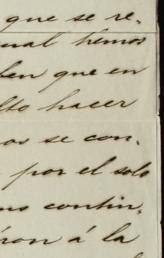 que se re-
ual hemos
ben que en
lto hacer
os se con-
por el solo
contin-
ron á la